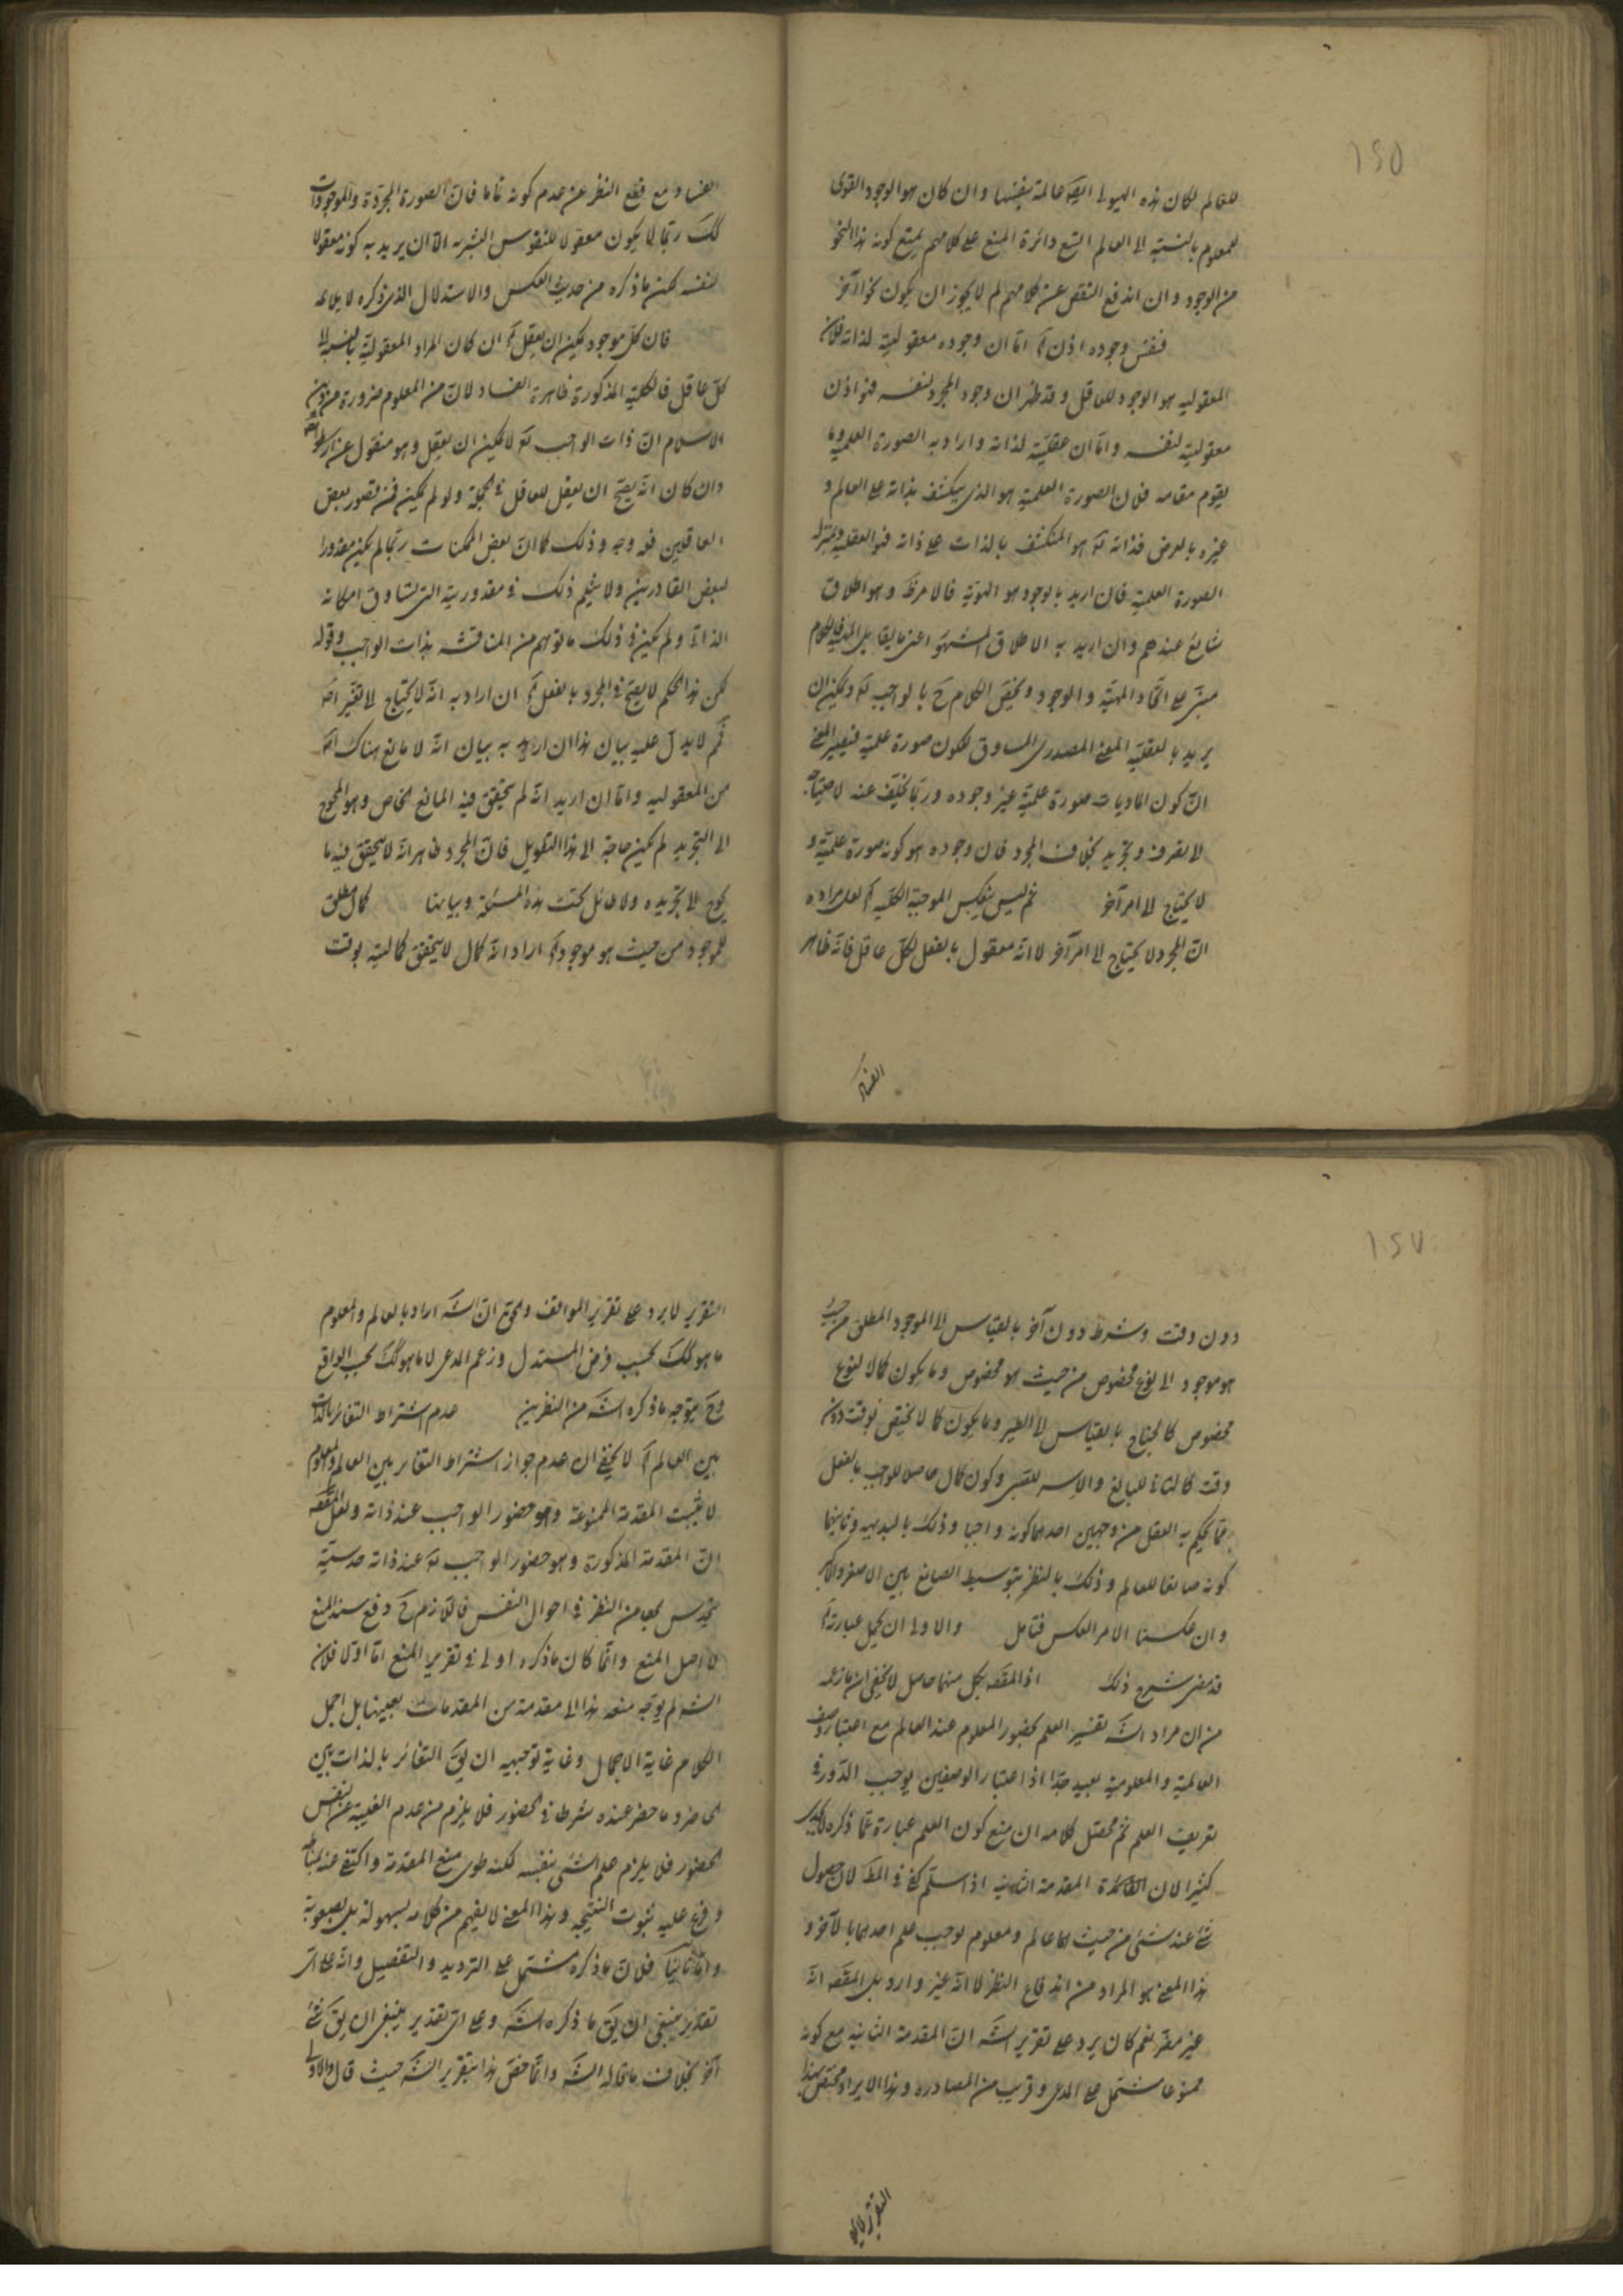 ١٥٥
للعالم لكان هذه الهيولى ايضا عالمة بنفسها وان كان هو الوجود القوى
للمعلوم بالنسبة الى العالم اتسع دائرة المنع على كلامهم يمتنع كونه هذا النحو
من الوجود وان اندفع النقض عن كلامهم لم لا يجوز ان يكون نحوا آخر
فنفس وجوده اذن آه اما ان وجوده معقولية لذاته فلان
المعقولية هو الوجود للعاقل وقد ظهر ان وجود المجرد لنفسه فهو اذن
معقولية لنفسه واما ان عقلية لذاته واراد به الصورة العلمية وما
يقوم مقامه فلان الصورة العلمية هو الذى ينكشف بذاته على العالم و
غيره بالعرض فذاته له هو المنكشف بالذات على ذاته فهو العقلية وبمنزلة
الصورة العلمية فان اريد بالوجود هو الهوية فالامر ظ وهو اطلاق
شايع عندهم وان اريد به الاطلاق المشهور اعنى ما يقابل المهية فالكلام
مبنى على اتحاد المهية والوجود ويختص الكلام ح بالواجب له ويمكن ان
يريد بالعقلية المعنى المصدرى المساوق لكون صورة علمية فيصير المعنى
ان كون الماديات صورة علمية غير وجوده وربما يتخلف عنه لاحتياجه
لا تعرف وتجريد بخلاف المجرد فان وجوده هو كونه صورة علمية و
لا يحتاج الى امر آخر ثم ليس ينعكس الموجبة الكلية آه لعل مراده
ان المجرد لا يحتاج الى امر آخر لا انه معقول بالفعل لكل عاقل فانه ظاهر
الفساد
الفساد مع قطع النظر عن عدم كونه تاما فان الصورة المجردة والموجودات
كك ربما لا يكون معقولا للنفوس البشرية الا ان يريد به كونه معقولا
لنفسه لكن ما ذكره من حديث العكس والاستدلال الذى ذكره لا يلائمه
فان كل موجود يمكن ان يعقل آه ان كان المراد المعقولية بالنسبة الى
كل عاقل فالكلية المذكورة ظاهرة الفساد لان من المعلوم ضرورة من دين
الاسلام ان ذات الواجب له لا يمكن ان يعقل وهو منقول عن ارسطو ايضا
وان كان انه يصح ان يعقل للعاقل فى الجملة ولو لم يكن فى تصور بعض
العاقلين فله وجه وذلك كما ان بعض الممكنات ربما لم يكن مقدورا
لبعض القادرين ولا يثلم ذلك فى مقدوريته التى تساوق امكانه
الذاتى ولم يكن فى ذلك ما توهم من المناقشة بذات الواجب وقوله
لكن هذا الحكم لا يصح فى المجرد بالفعل آه ان اراد به انه لا يحتاج لا تغير اصلا
ثم لا يدل عليه بيان هذا ان اريد به بيان انه لا مانع هناك اصلا
من المعقولية واما ان اريد انه لم يتحقق فيه المانع الخاص وهو المحوج
الى التجريد لم يكن حاجة الى هذا التطويل فان المجرد ظاهر انه لا يتحقق فيه ما
يحوج الى تجريده ولا طائل تحت هذه المسئلة وبيانها كمال مطلق
للموجود من حيث هو موجود آه اراد انه كمال لا يتحقق كماليته بوقت
١٥٧
دون وقت وشرط دون آخر بالقياس الى الموجود المطلق من حيث
هو موجود الى نوع مخصوص من حيث هو مخصوص وما يكون كمالا لنوع
مخصوص كالجناح بالقياس الى الطير وما يكون كمالا يختص بوقت دون
وقت كاللحية للبالغ والاسر للصبى وكون كل كمال حاصلا للواجب بالفعل
مما يحكم به العقل من وجهين احدهما كونه واجبا وذلك بالبديهه وثانيهما
كونه صانعا للعالم وذلك بالنظر بتوسيط الصانع بين الاصغر والاكبر
وان عكسنا الامر انعكس فتامل والاولى ان يحمل عبارته آه
قد مضى شرح ذلك اذ المقصد بكل منهما حاصل لا يخفى ان ما زعمه
من ان مراد الشه تفسير العلم بحضور المعلوم عند العالم مع اعتبار وصف
العالمية والمعلومية بعيد جدا اذ اعتبار الوصفين يوجب الدور فى
تعريف العلم ثم محصل كلامه ان منع كون العلم عبارة عما ذكره لا يجدى
كثيرا لان المقدمة الثانية اذا سلم كفى فى المط لان حصول
شئ عند شئ من حيث هما عالم ومعلوم لوجب علم احدهما بالآخر و
هذا المعنى هو المراد من اندفاع النظر لا انه غير وارد بل المقصد انه
غير مضر نعم كان يرد على تقرير الشه ان المقدمة الثانية مع كونه
ممنوعا مشتمل على المدعى وقريب من المصادره وهذا الايراد مختص بهذا
التقرير لا يرد
التقرير لا يرد على تقرير المواقف والحق ان الشه اراد بالعالم والمعلوم
ما هو كك بحسب فرض المستدل وزعم المدعى لا ما هو كك بحسب الواقع
وح يتوجه ما ذكره الشه من النظرين عدم اشتراط التغاير بالذات
بين العالم آه لا يخفى ان عدم جواز اشتراط التغاير بين العالم والمعلوم
لا يثبت المقدمة الممنوعة وهو حضور الواجب عند ذاته ولعل المقصد
ان المقدمة المذكورة وهو حضور الواجب له عند ذاته حدسية
يتحدس بها من النظر فى احوال النفس فاللازم ح دفع سند المنع
لا اصل المنع وانما كان ما ذكره اولى فى تقرير المنع اما اولا فلان
الشه لم يوجه منعه هذا الى مقدمة من المقدمات بعينها بل اجمل
الكلام غاية الاجمال وغاية توجيهه ان يق التغاير بالذات بين
الحاضر وما حضر عنده شرط فى الحضور فلا يلزم من عدم الغيبة عن النفس
الحضور فلا يلزم علم الشئ بنفسه لكنه طوى منع المقدمة واكتفى عنه بمنافاته
وفرع عليه ثبوت النتيجه وهذا المعنى لا يفهم من كلامه بسهولة بل بصعوبة
واما ثانيا فلان ما ذكره مشتمل على الترديد والتفصيل وانه على اى
تقدير ينبغى ان يق ما ذكره الشه وعلى اى تقدير ينبغى ان يق شئ
آخر بخلاف ما قاله الشه وانما خص هذا بتقرير الشه حيث قال والاولى